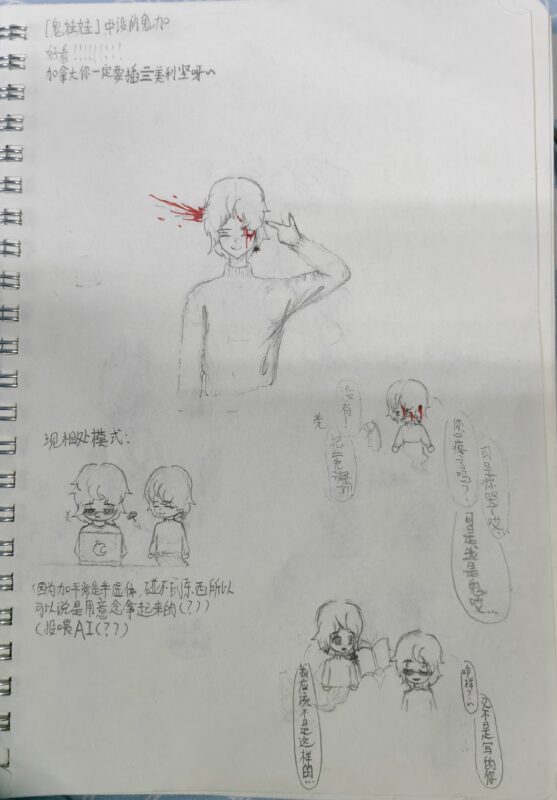 [鬼娃娃]中设的鬼加
好看!!!!!!!!
加拿大你一定要插三美利坚呀~
没有!
把亮擦了!
你心疼了吗?~
可是你哭了哎…
可是光是鬼哎…
现相处模式:
(因为加平常是半虚体,碰不到东西所以
可以说是用意念拿起来的(?))
(投喂AI(??)
我应该不是这样的…
咋样?~
又不是写的你